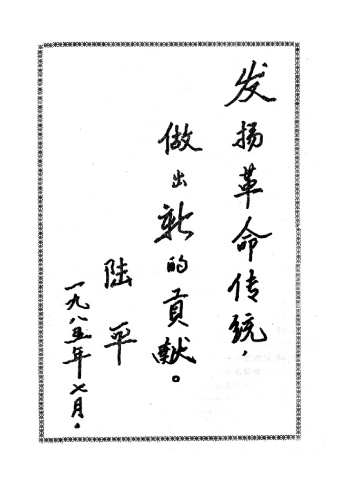 发扬革命传统，
做出新的贡献。
陆平
一九八五年七月。